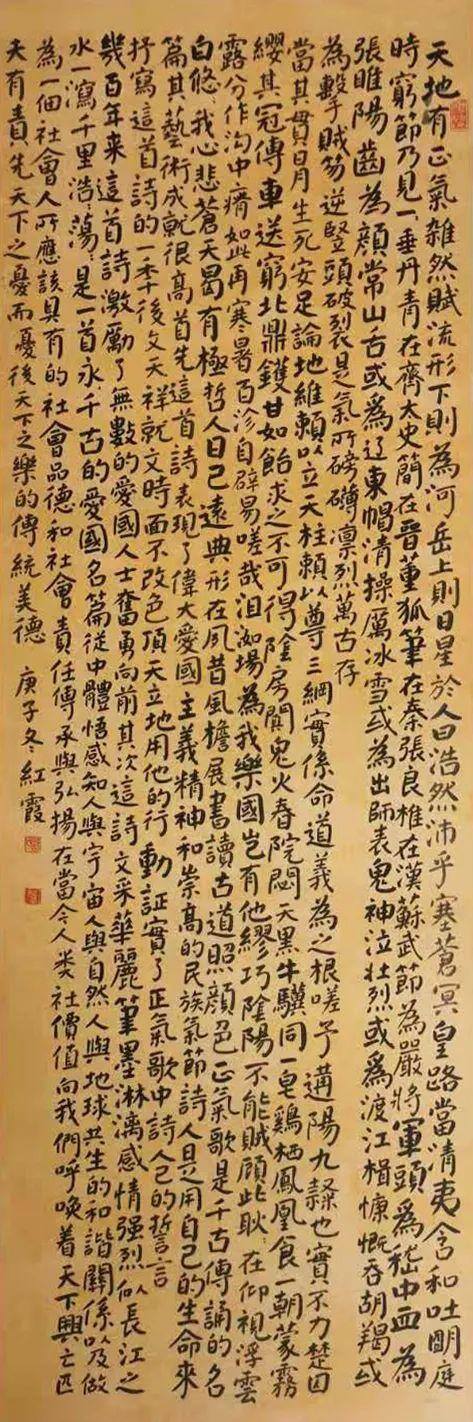 天地有正氣雜然賦流形下則為河岳上則日星於人曰浩然沛乎塞蒼冥皇路當清夷含和吐明庭
時窮節乃見一垂丹青在齊太史簡在晉董狐筆在秦張良椎在漢蘇武節為嚴將軍頭為嵇中血為
張睢陽齒為顏常山舌或為辽東帽清操厲冰雪或為出師表鬼神泣壯烈或為渡江楫慷慨吞胡羯或
為擊賊笏逆竪頭破裂是氣所磅礴凛烈萬古存
當其貫日月生死安足論地維賴以立天柱賴以尊三綱實係命道義為之根嗟予遘陽九隸也實不力楚囚
纓其冠傳車送窮北鼎鑊甘如飴求之不可得陰房闃鬼火春院閟天黑牛驥同一皂鷄栖鳳凰食一朝蒙霧
露分作沟中瘠如此再寒暑百沴自辟易嗟哉沮洳場為我樂國豈有他繆巧陰陽不能賊顧此耿:在仰視浮雲
白悠:我心悲蒼天曷有極哲人日已遠典形在夙昔風檐展書讀古道照顏色正氣歌是千古傳誦的名
篇其藝術成就很高首先這首詩表現了偉大愛國主義精神和崇高的民族氣節詩人是用自己的生命來
抒寫這首詩的一年後文天祥就文時面不改色頂天立地用他的行動証實了正氣歌中詩人己的誓言
幾百年来這首詩激勵了無數的愛國人士奮勇向前其次這詩文采華麗筆墨淋漓感情强烈似長江之
水一瀉千里浩:蕩:是一首永千古的愛國名篇從中體悟感知人與宇宙人與自然人與地球共生的和諧關係以及做
為一個社會人所應該具有的社會品德和社會責任傳承與弘揚在當今人类社價值向我們呼唤着天下興亡匹
夫有責先天下之憂而憂後天下之樂的傳統美德 庚子冬紅霞